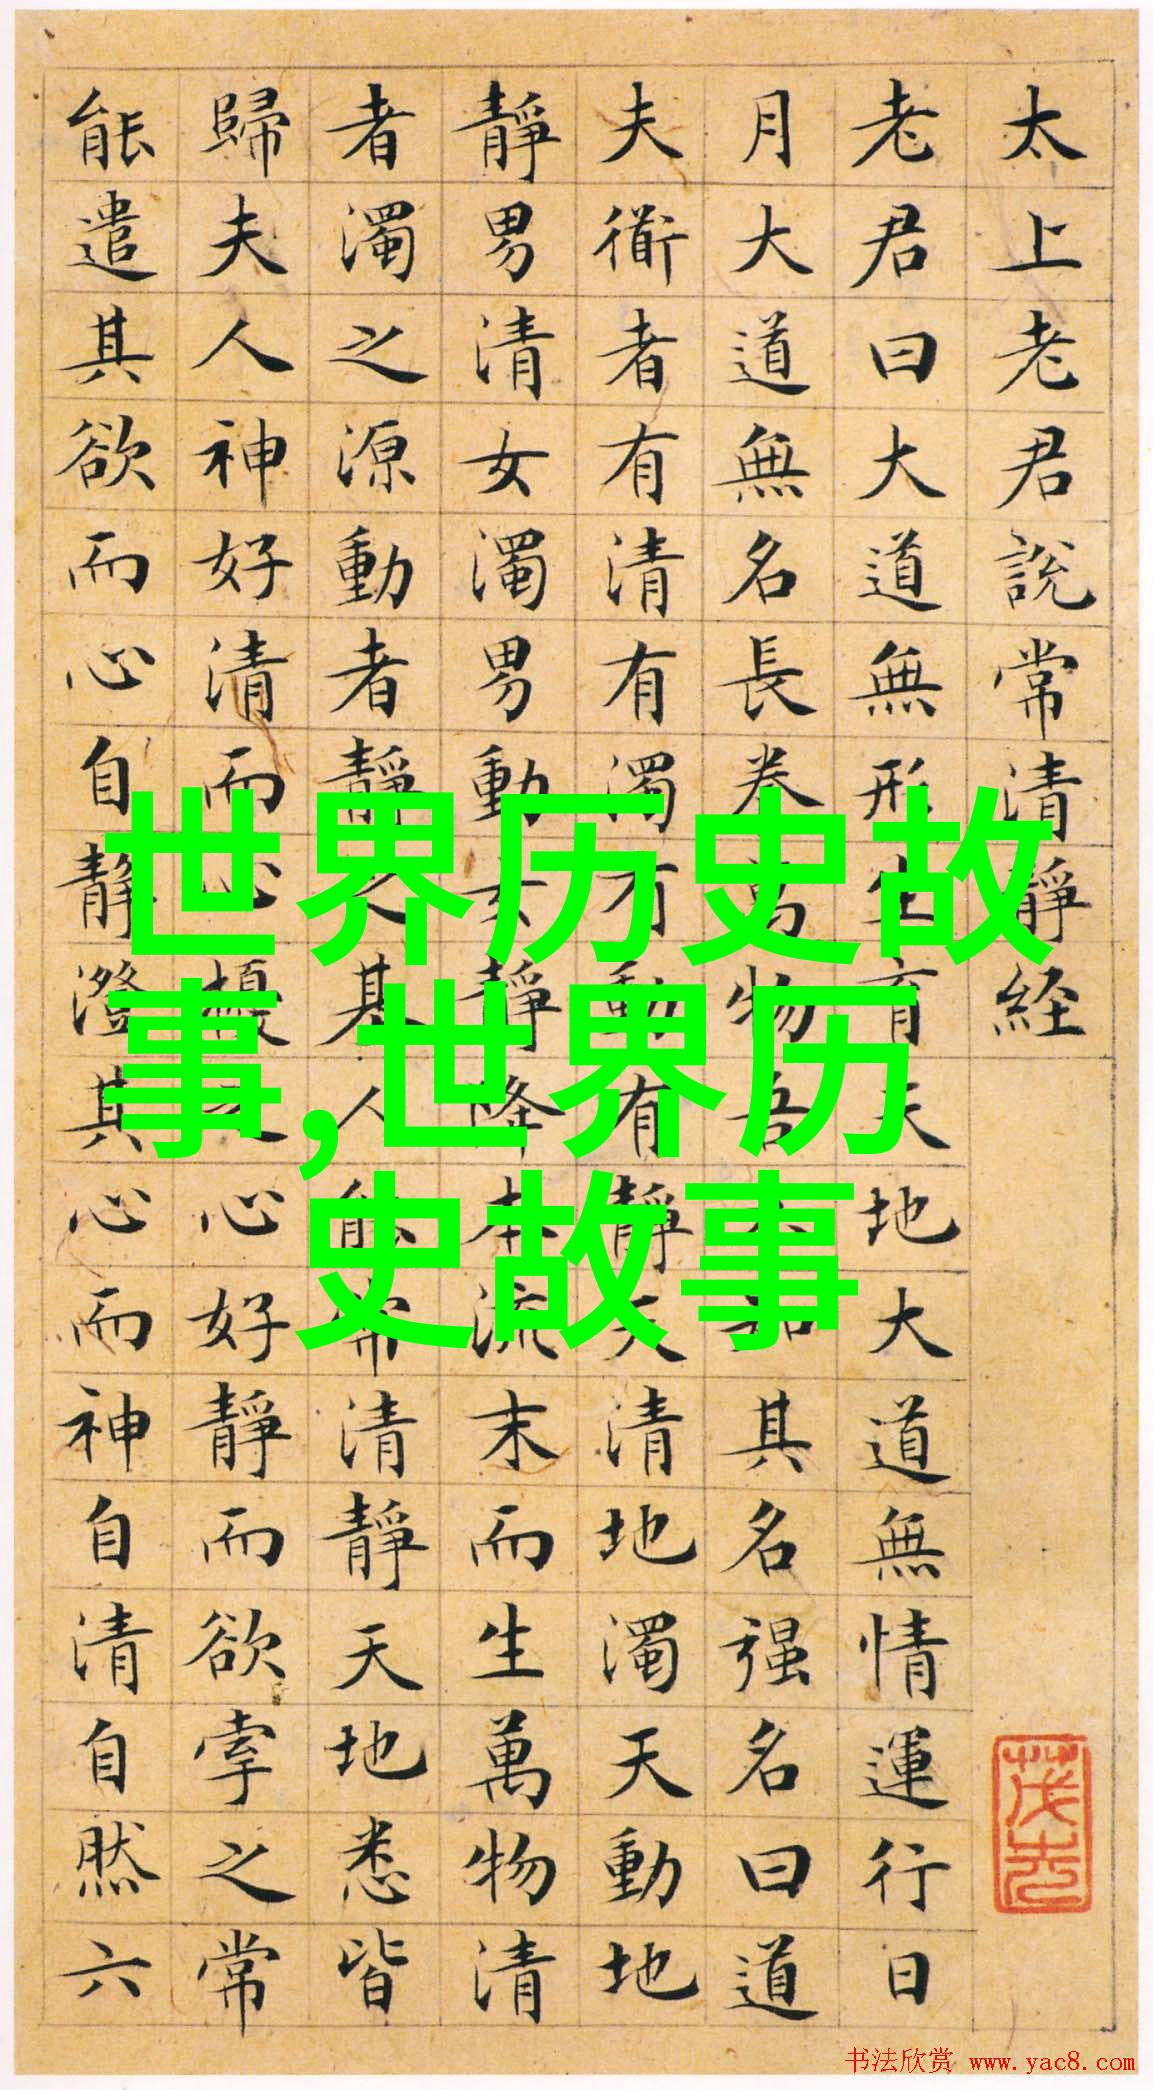 太上老君說常清靜経
老君曰大道無形生育天地大道無情運行日
月大道無名長養萬物吾知其名强名曰道
夫衜者有清有濁有動有靜天清地濁天動地
靜男清女濁男動女靜降本流末而生萬物清
者濁之源動者靜之基人能常清靜天地悉皆
歸夫人神好清而心擾之心好靜而欲牽之常
能遣其欲而心自靜澄其心而神自清自然六
世界历史故
事,世界历
史故事
书法欣赏 www.yac8.com